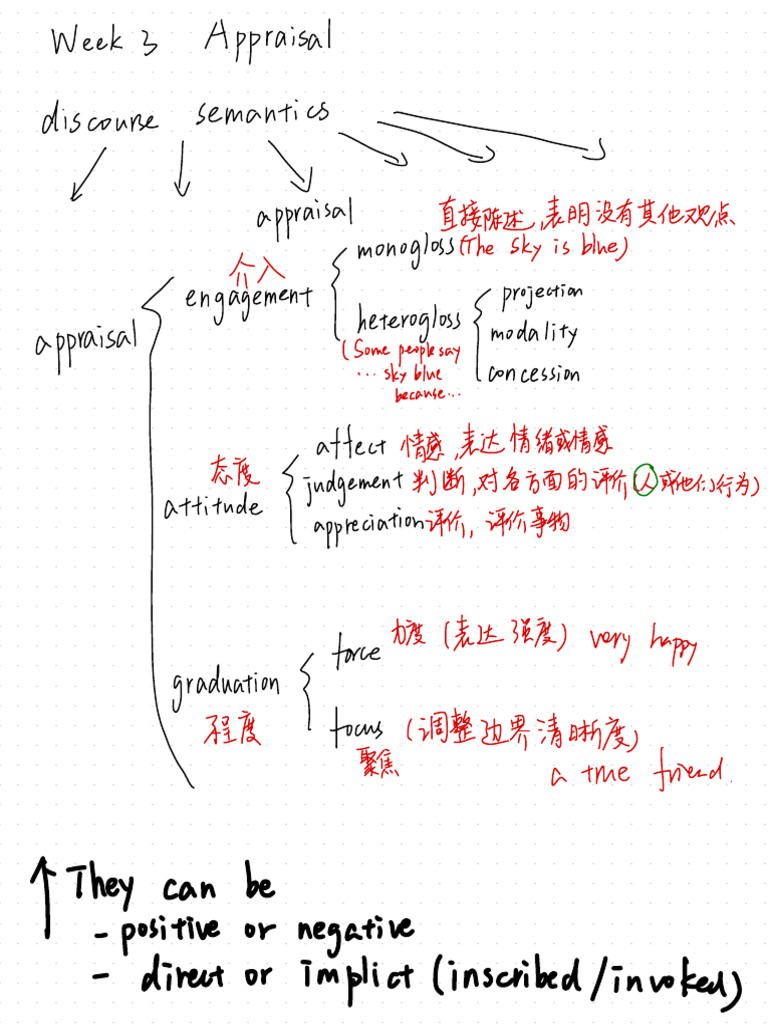 Week 3 Appraisal
discourse semantics
appraisal
直接陈述,表明没有其他观点
monogloss (The sky is blue)
介入
engagement
projection
heterogloss
modality
appraisal
(Some people say
... sky blue
because...
concession
affect 情感,表达情绪或情感
态度
judgement 判断,对各方面的评价(人或他们行为)
attitude
appreciation 评价,评价事物
force 力度(表达强度) very happy
graduation
程度
focus (调整边界清晰度)
聚焦
a true friend.
They can be
- positive or negative
- direct or implict (inscribed/invoked)